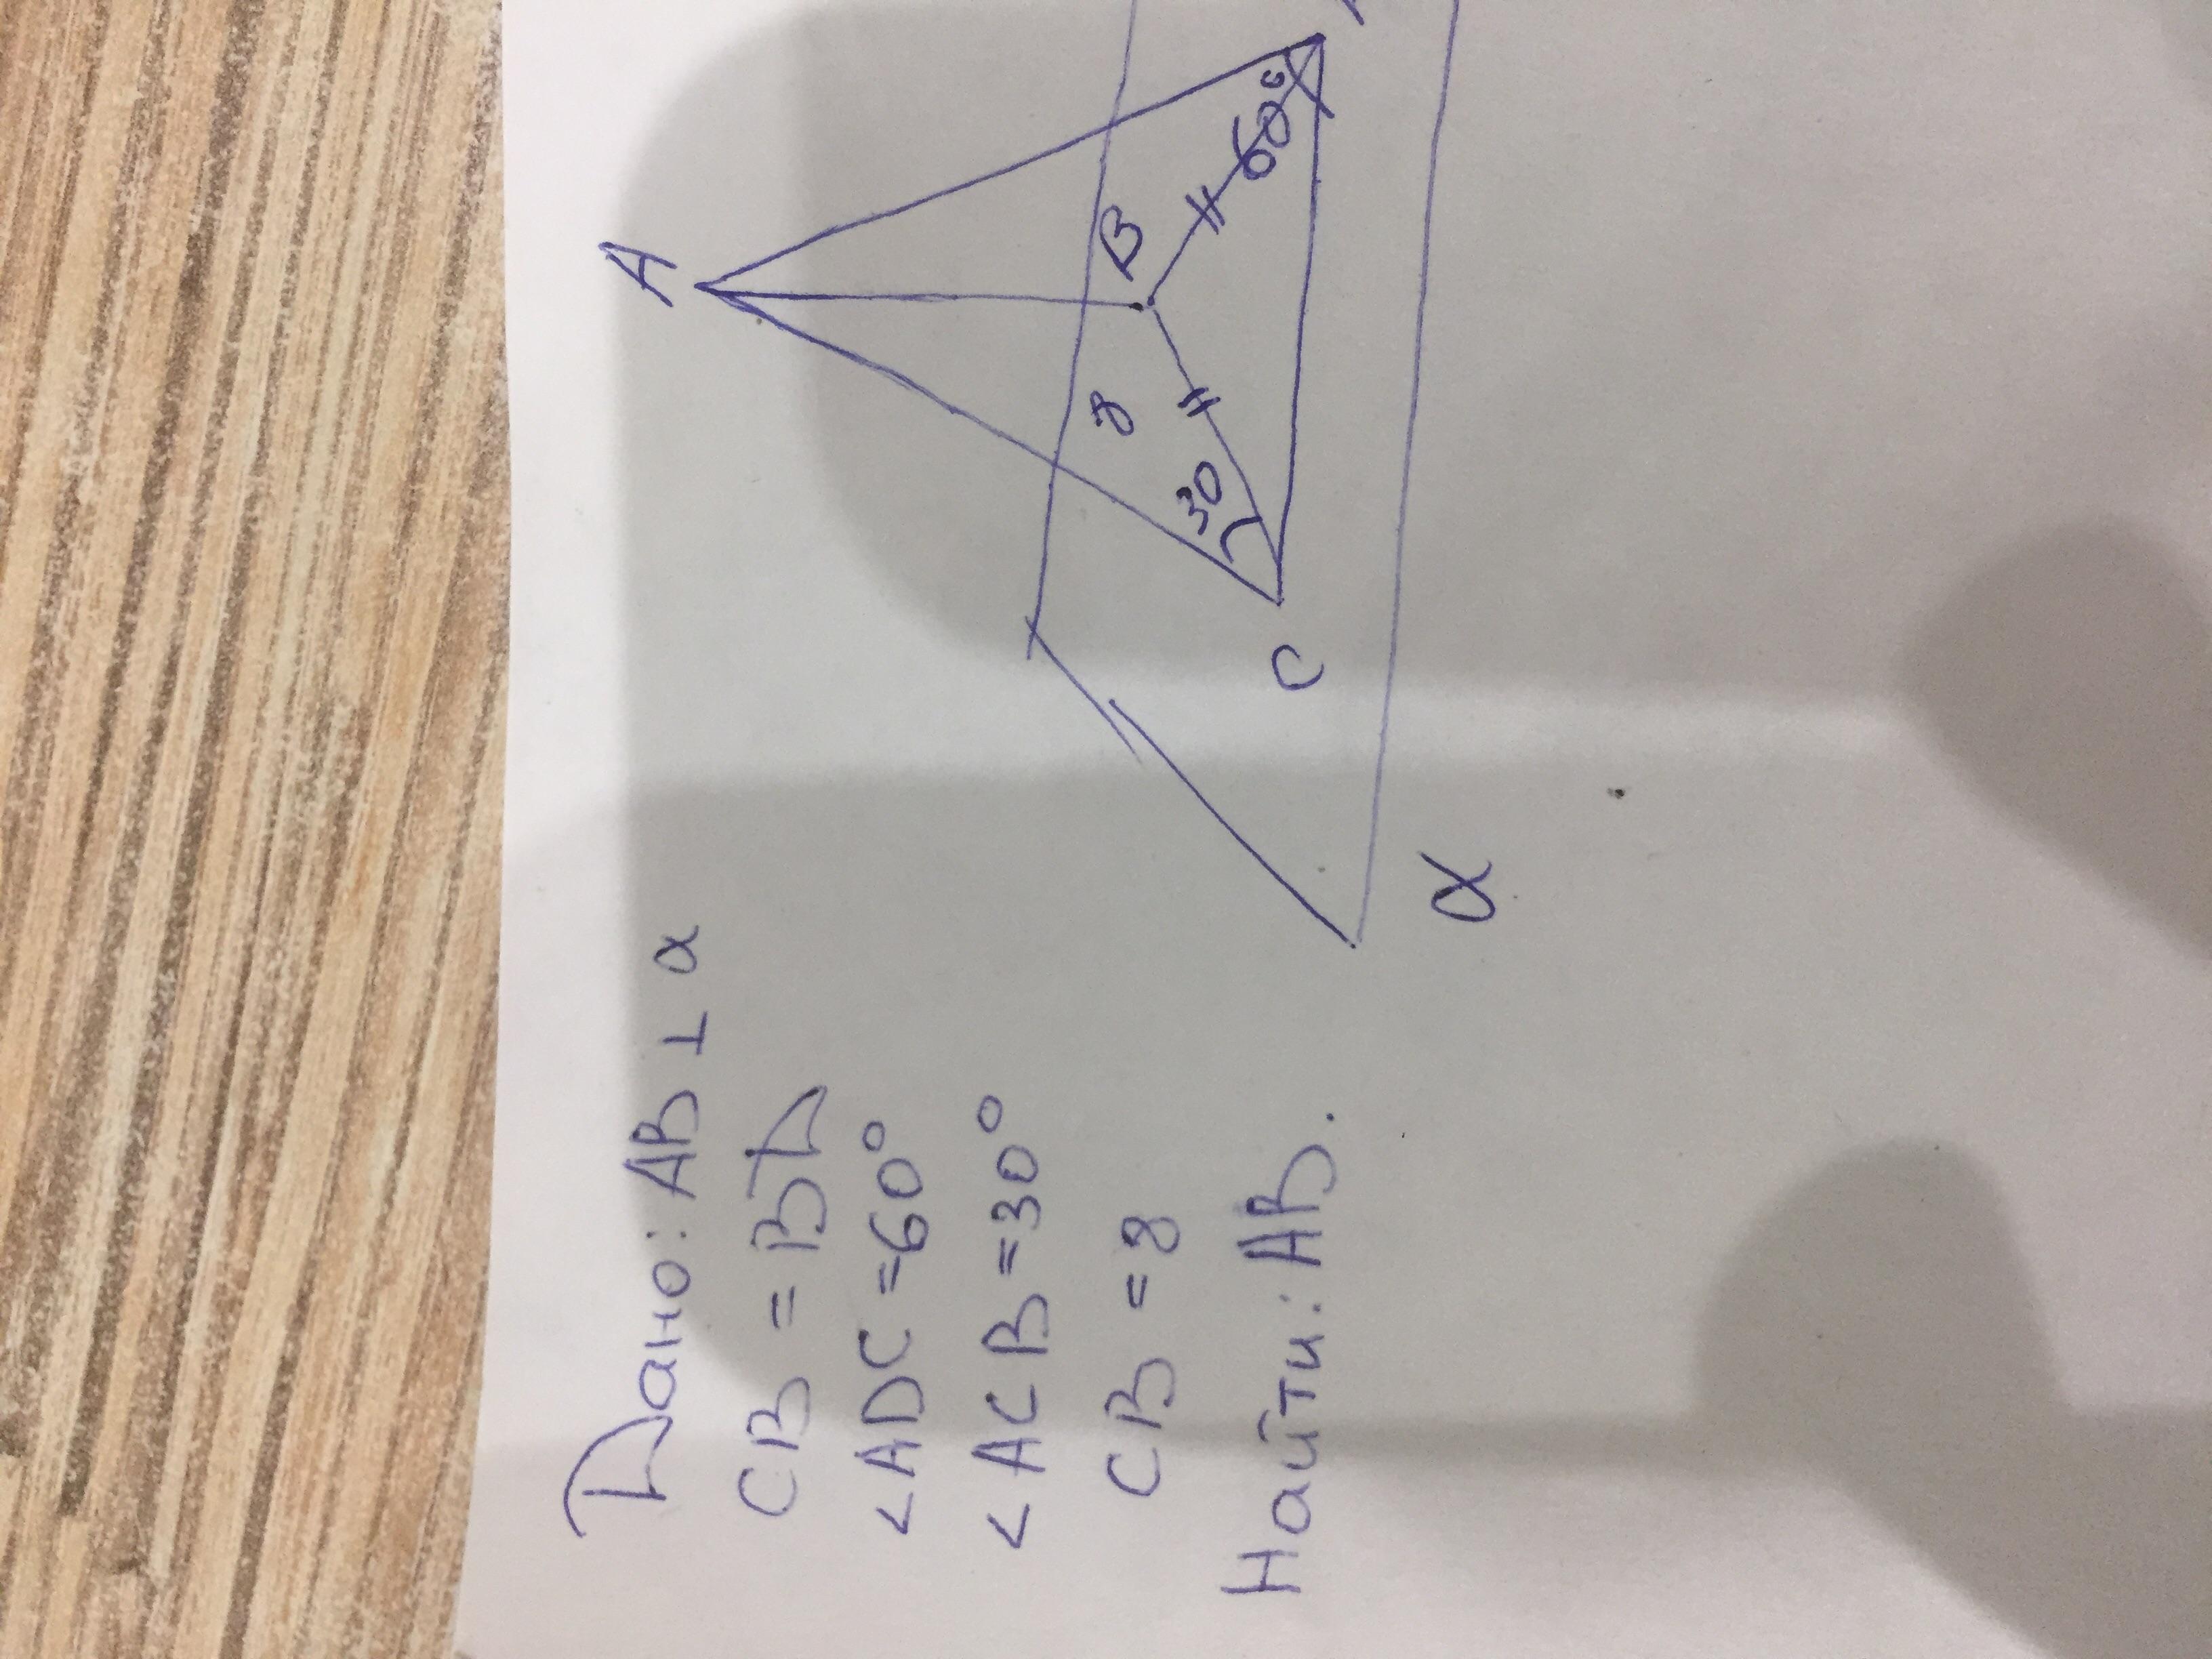 Дано: AB ⊥ α
CB = BD
<ADC = 60°
<ACB = 30°
CB = 8
Найти: AB.
A
B
8
30
60°
C
α